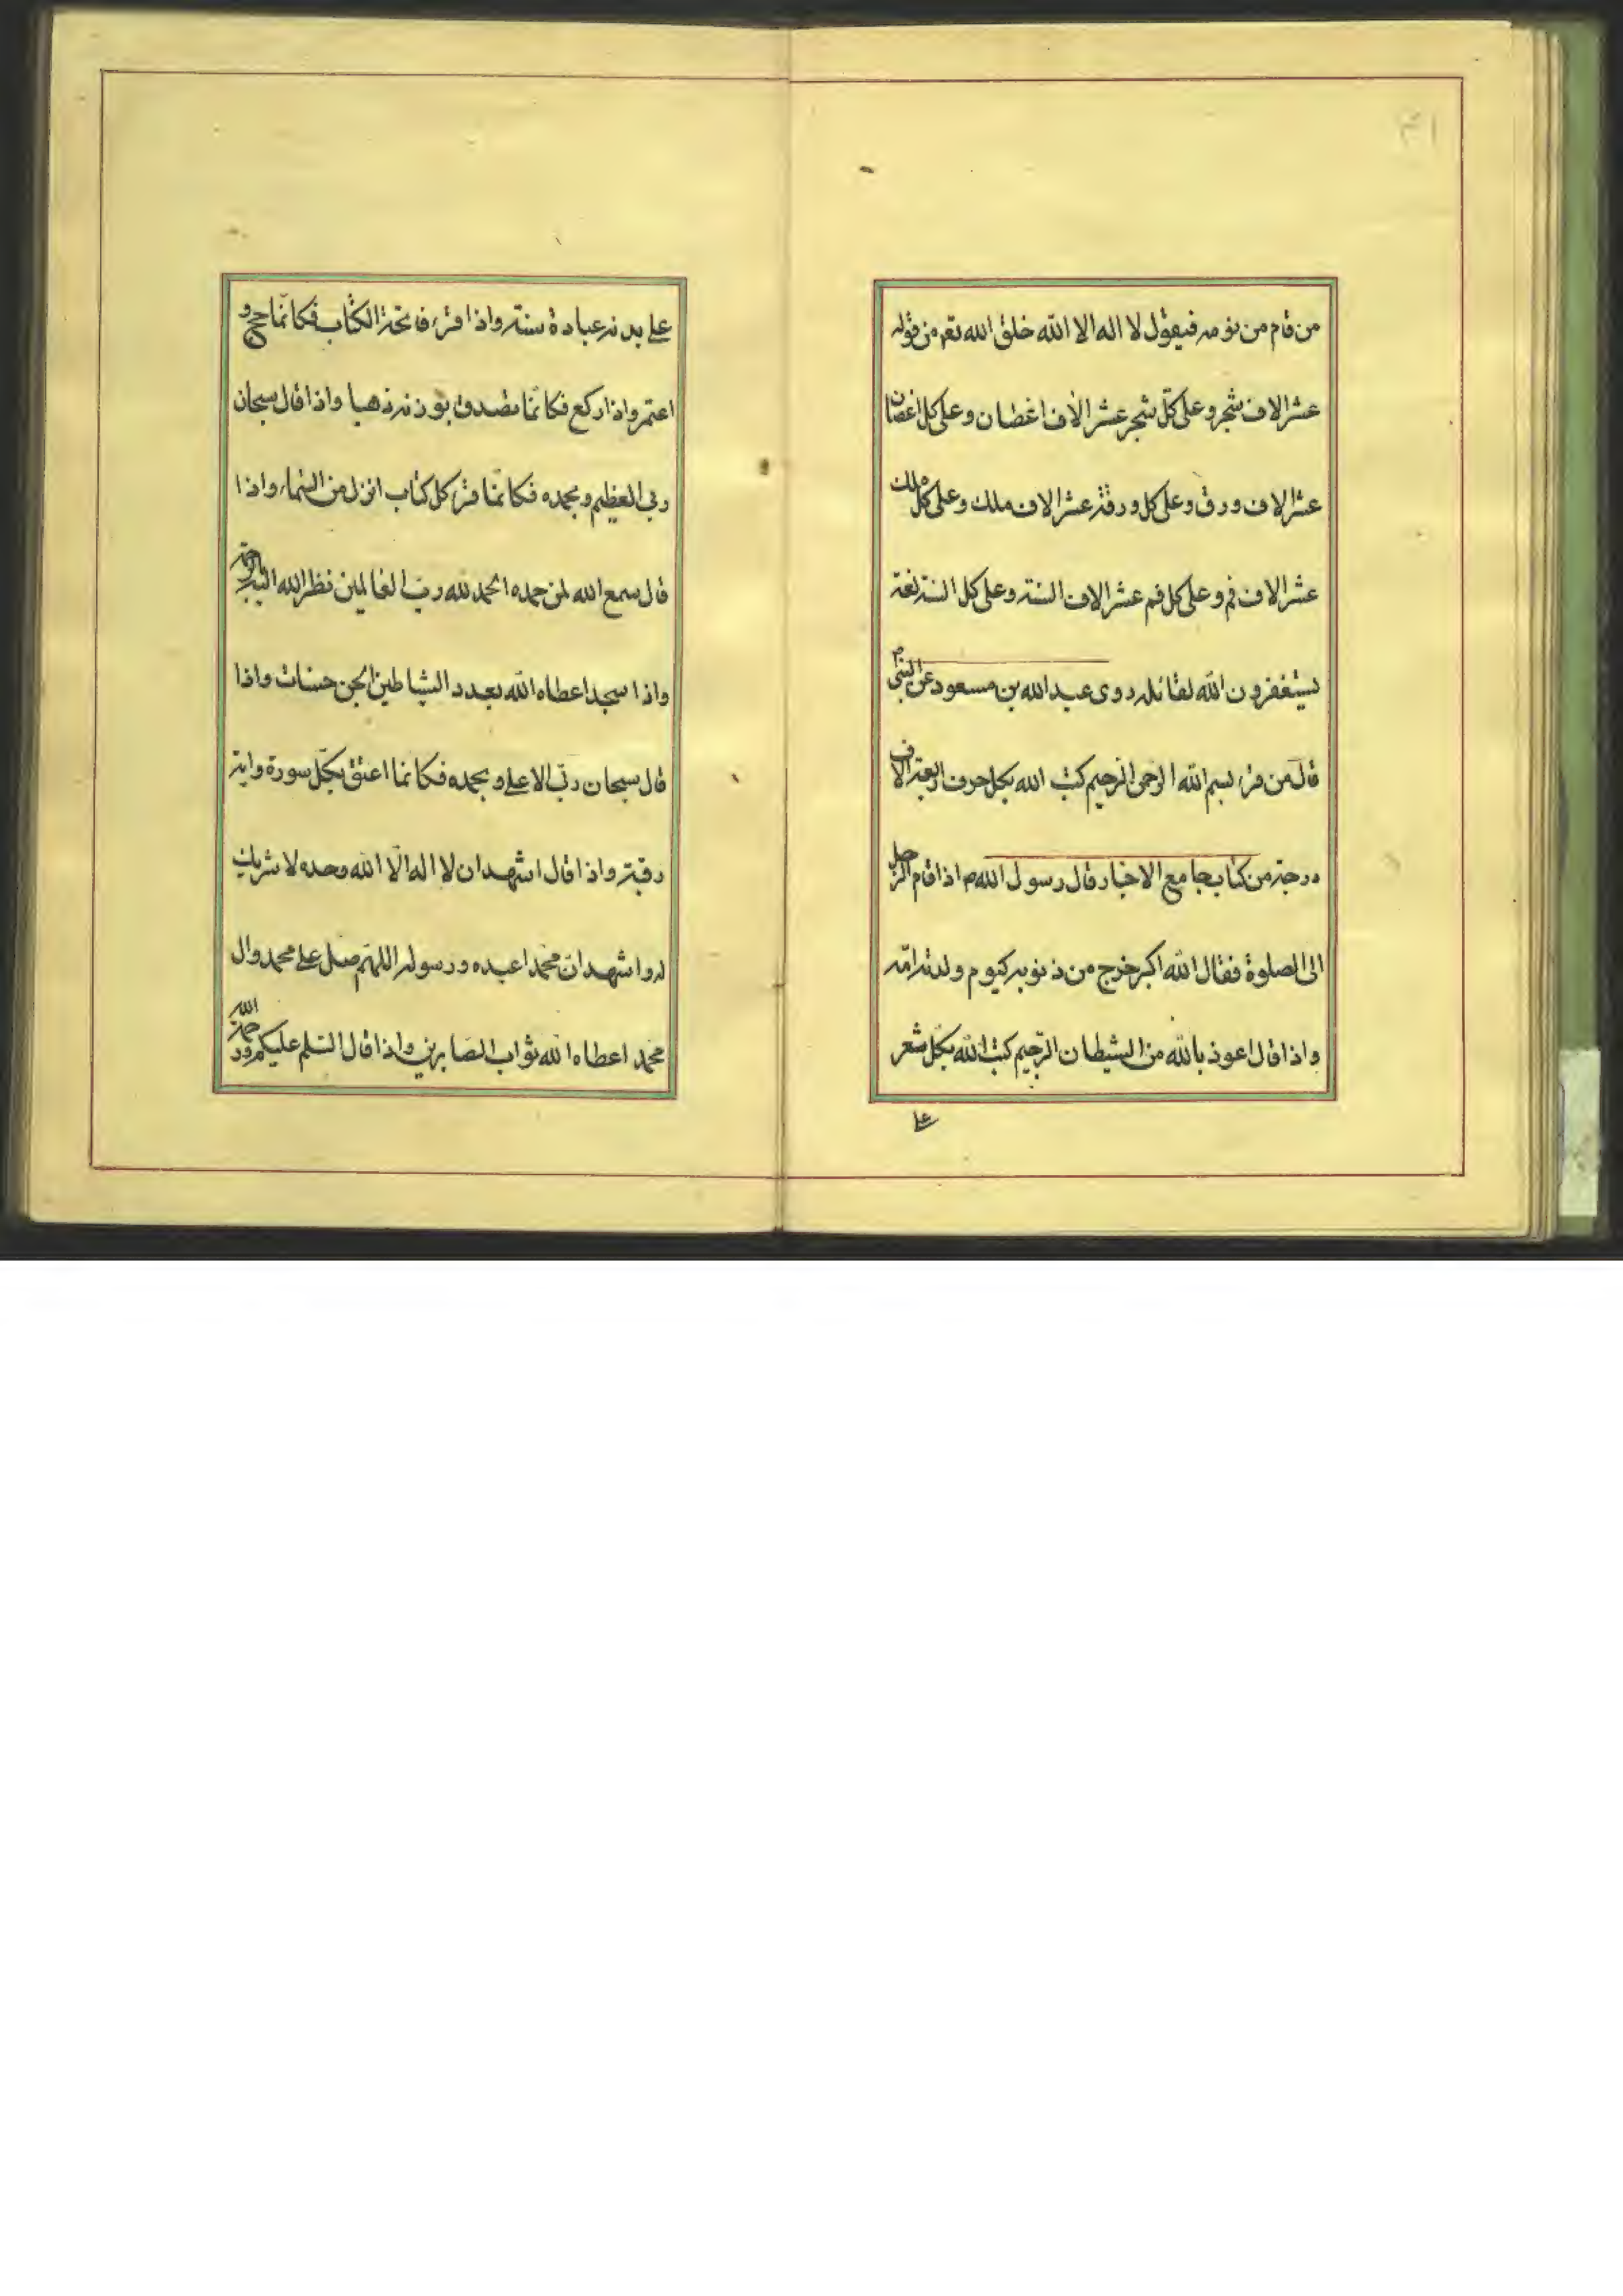 من قام من نومه فيقول لا اله الا الله خلق الله تعم من قوله
عشر الاف شجر و على كلّ شجر عشر الاف اغصان و على كل اغصان
عشر الاف ورق و على كل ورقة عشر الاف ملك و على كل ملك
عشر الاف فم و على كل فم عشر الاف السنة و على كل السنة لغة
يستغفرون الله لقائله روى عبد الله بن مسعود عن النبي ص
قال من قرء بسم الله الرحمن الرحيم كتب الله بكل حرف اربعة الاف
درجة من كتاب جامع الاخبار قال رسول الله ص اذا قام الرجل
الى الصلوة فقال الله اكبر خرج من ذنوبه كيوم ولدته امّه
و اذا قال اعوذ بالله من الشيطان الرّجيم كتب الله بكل شعر
على
على بدنه عبادة سنة و اذا قرء فاتحة الكتاب فكانّما حج و
اعتمر و اذا ركع فكانّما تصدق بوزنه ذهبا و اذا قال سبحان
ربي العظيم و بحمده فكانّما قرء كل كتاب انزل من السّماء و اذا
قال سمع الله لمن حمده الحمد لله ربّ العالمين نظر الله اليه
و اذا سجد اعطاه الله بعدد الشياطين الجن حسنات و اذا
قال سبحان ربّي الاعلى و بحمده فكانما اعتق بكلّ سورة و اية
رقبة و اذا قال اشهد ان لا اله الّا الله وحده لا شريك
له و اشهد انّ محمّدا عبده و رسوله اللهمّ صل على محمد وال
محمّد اعطاه الله ثواب الصّابرين و اذا قال السّلم عليكم و رحمة الله